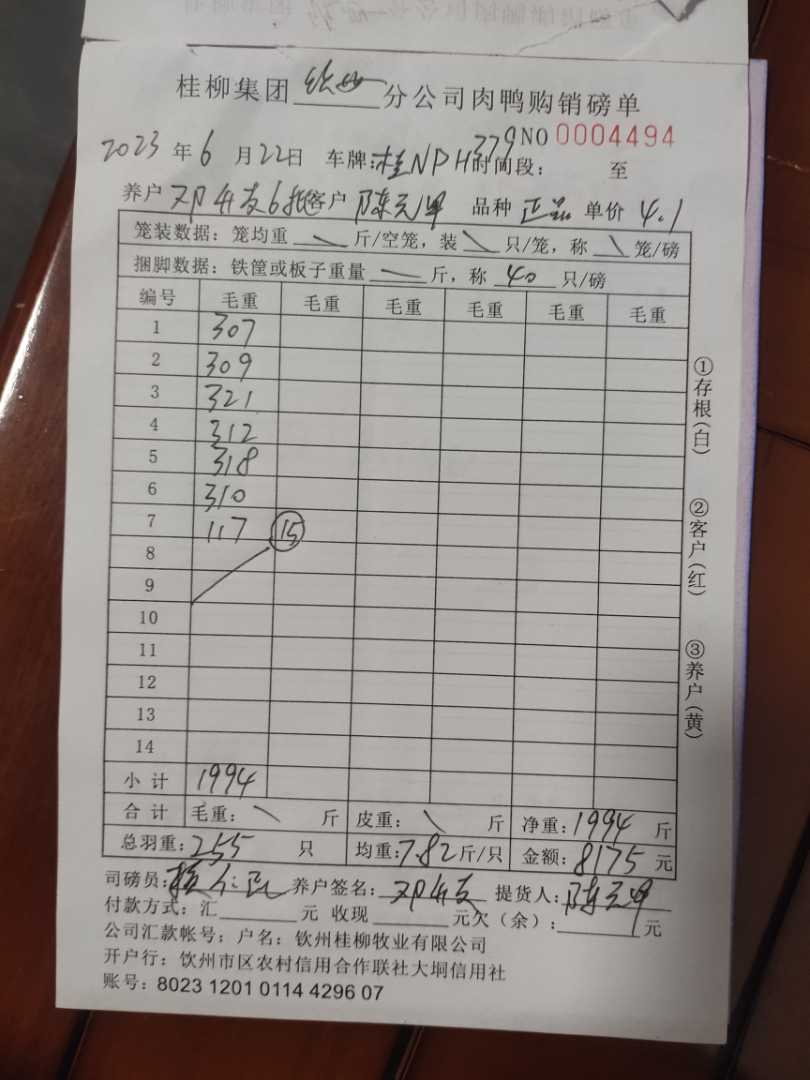 桂柳集团钦州分公司肉鸭购销磅单
NO 0004494
2023年6月22日 车牌:桂NPH379 时间段: 至
养户 邓 友6批 客户 陈 品种 正品 单价 4.1
笼装数据:笼均重 \ 斤/空笼,装 \ 只/笼,称 \ 笼/磅
捆脚数据:铁筐或板子重量 \ 斤,称 40 只/磅
编号 毛重 毛重 毛重 毛重 毛重 毛重
1 307
2 309
3 321
4 312
5 318
6 310
7 117 15
8
9
10
11
12
13
14
小计 1994
合计 毛重: \ 斤 皮重: \ 斤 净重:1994 斤
总羽重:255 只 均重:7.82斤/只 金额:8175元
司磅员: 养户签名:邓 友 提货人:陈
付款方式:汇 元 收现 元欠(余): 元
公司汇款帐号:户名:钦州桂柳牧业有限公司
开户行:钦州市区农村信用合作联社大垌信用社
账号:8023 1201 0114 4296 07
①存根(白)
②客户(红)
③养户(黄)